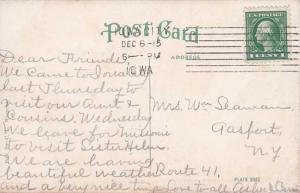 Post Card
DEC 6-15
IOWA
ADDRESS
Dear Friends
We came to Iowa
last Thursday to
visit our Aunt &
Cousins. Wednesday
we leave for Missouri
to visit Sister Helen
We are having
beautiful weather
and a very nice time. Love to all
Mrs. Wm Seaman
Gasport,
N.Y
Route 41,